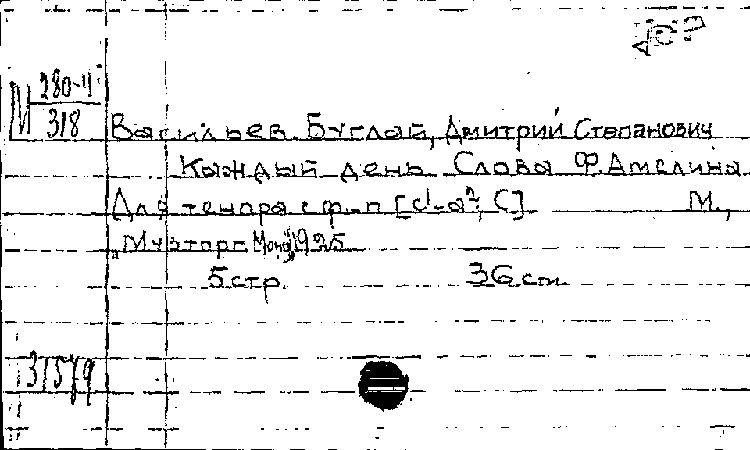 М 280-4
318
Васильев-Буглай, Дмитрий Степанович
Каждый день. Слова Ф. Амелина
Для тенора с ф-п [d-a², C] М.,
„Музторг Мопи", 1925
5 стр. 36 см.
31579